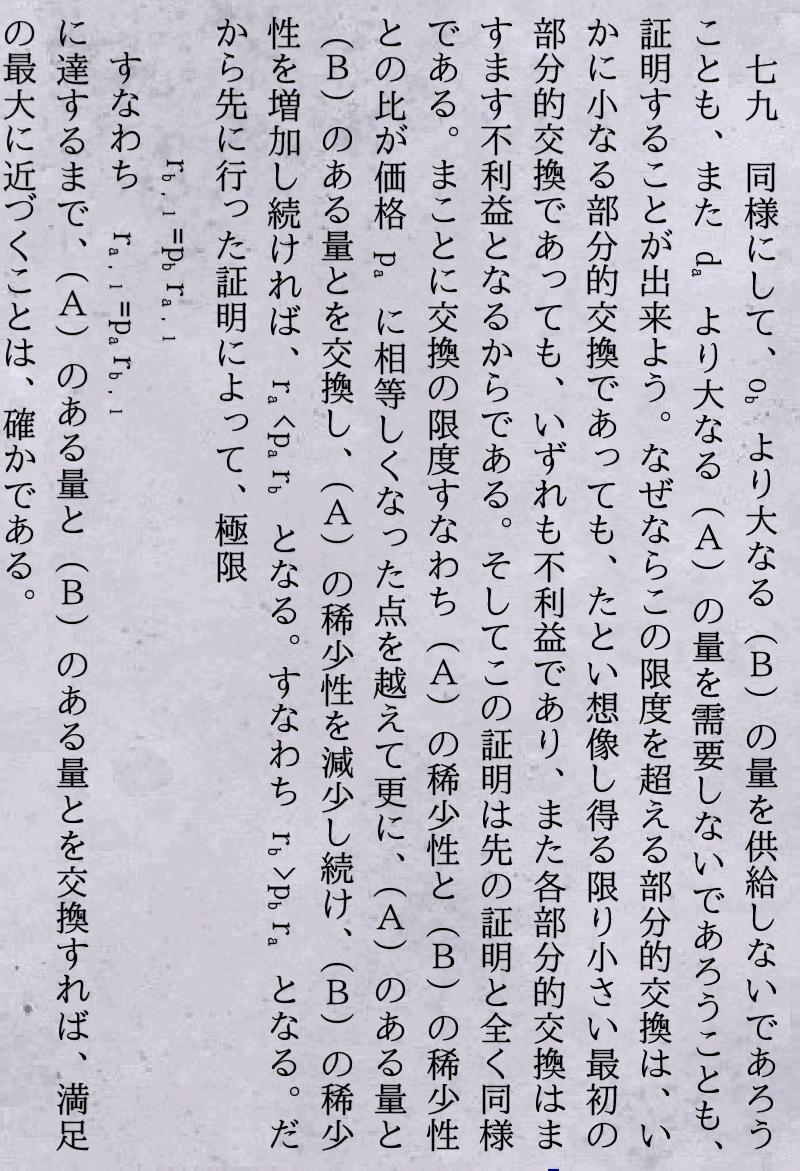 七九　同様にして、o_b より大なる（B）の量を供給しないであろう
ことも、また d_a より大なる（A）の量を需要しないであろうことも、
証明することが出来よう。なぜならこの限度を超える部分的交換は、い
かに小なる部分的交換であっても、たとい想像し得る限り小さい最初の
部分的交換であっても、いずれも不利益であり、また各部分的交換はま
すます不利益となるからである。そしてこの証明は先の証明と全く同様
である。まことに交換の限度すなわち（A）の稀少性と（B）の稀少性
との比が価格 p_a に相等しくなった点を越えて更に、（A）のある量と
（B）のある量とを交換し、（A）の稀少性を減少し続け、（B）の稀少
性を増加し続ければ、r_a<p_a r_b となる。すなわち r_b>p_b r_a となる。だ
から先に行った証明によって、極限
r_b,1=p_b r_a,1
すなわち r_a,1=p_a r_b,1
に達するまで、（A）のある量と（B）のある量とを交換すれば、満足
の最大に近づくことは、確かである。